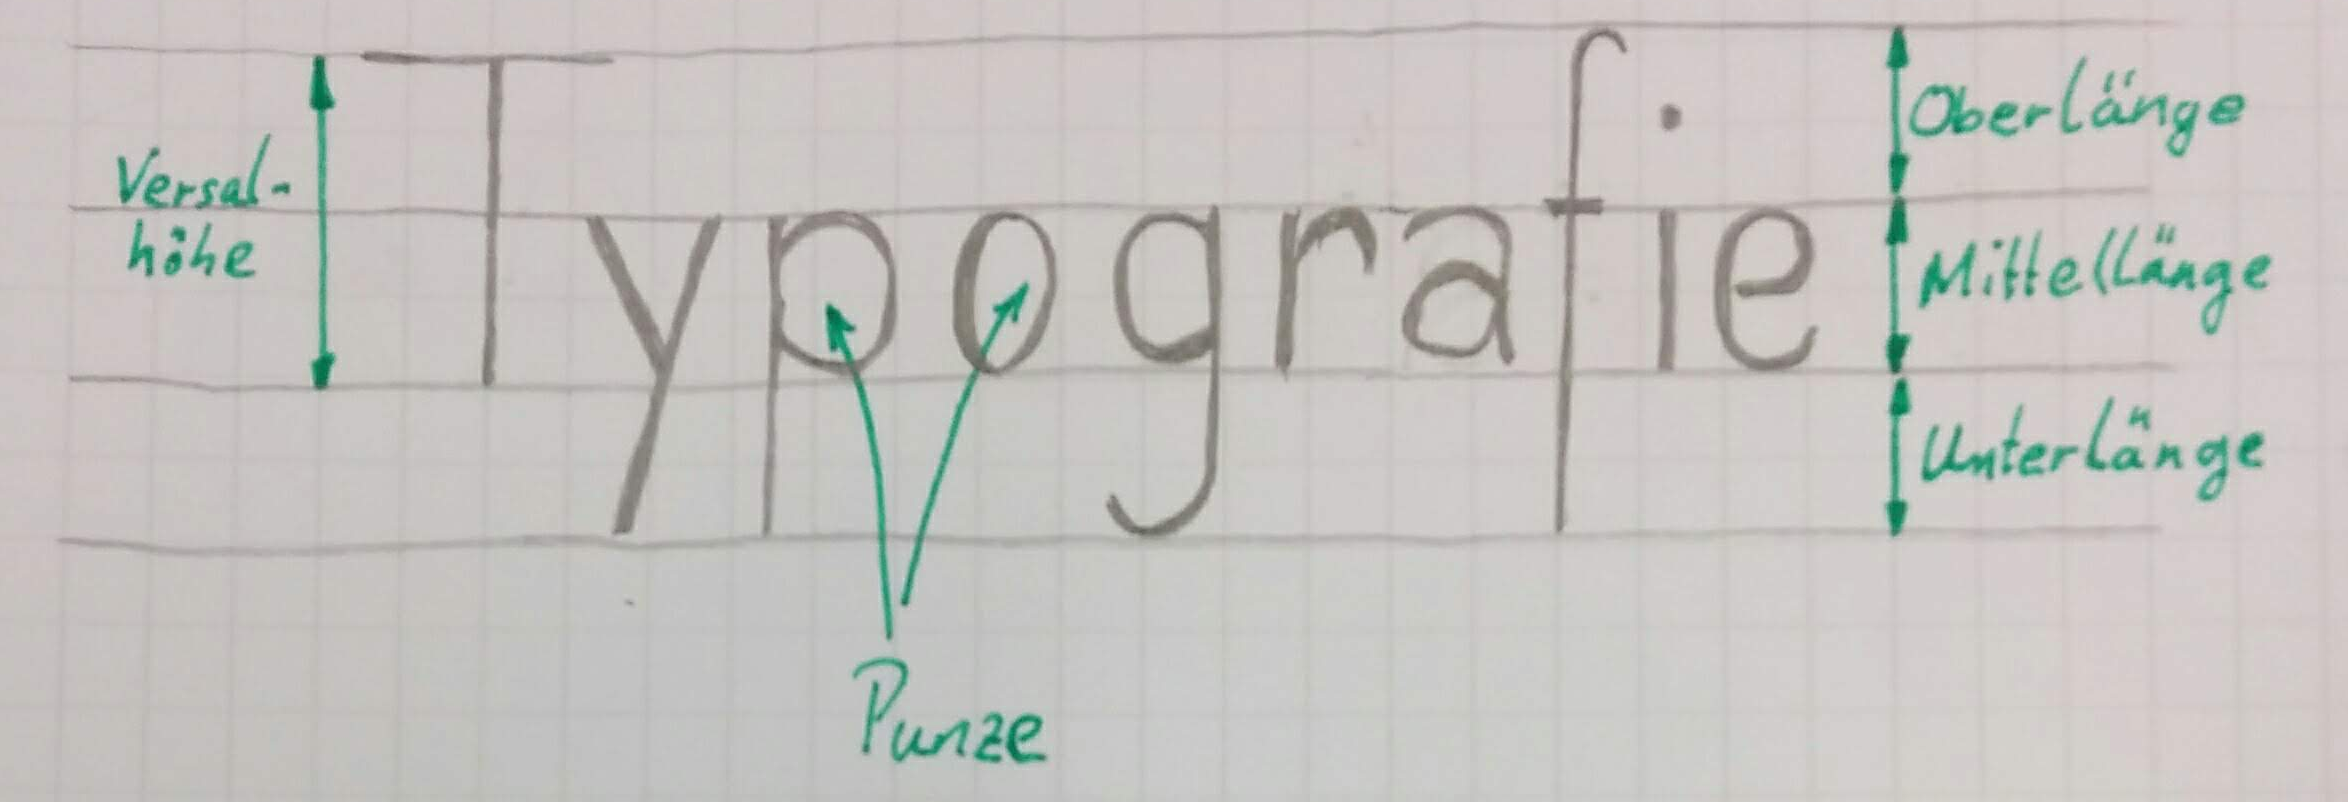 Versal-
höhe
Typografie
Oberlänge
Mittellänge
Unterlänge
Punze